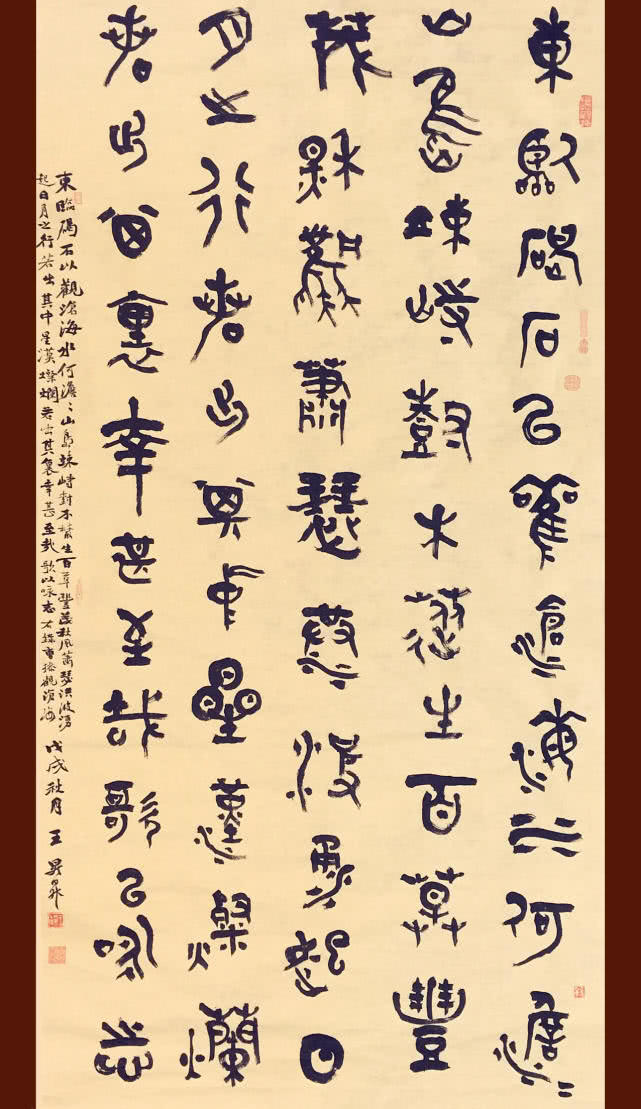 東臨碣石以觀滄海水何澹〻
山島竦峙樹木叢生百草豐
茂秋風蕭瑟洪波湧起日
月之行若出其中星漢粲爛
若出其裏幸甚至哉歌以咏志
東臨碣石以觀滄海水何澹〻山島竦峙樹木叢生百草豐茂秋風蕭瑟洪波湧
起日月之行若出其中星漢燦爛若出其裏幸甚至哉歌以咏志右錄曹操觀滄海
戊戌秋月王